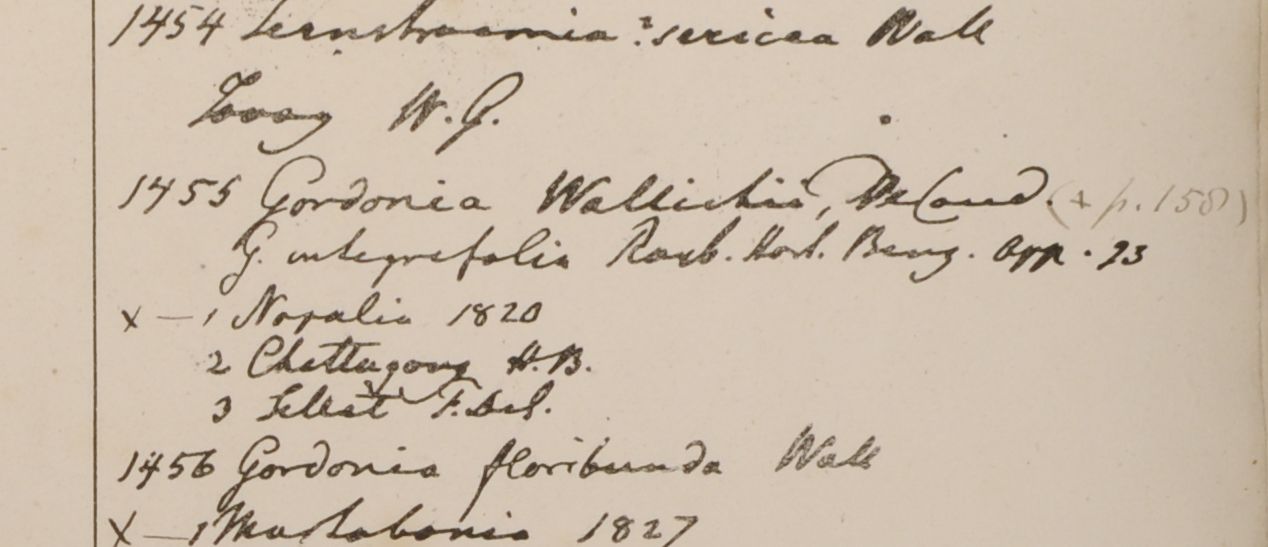 1454 Ternstraemia? sericea Wall
Tavoy W.G.
1455 Gordonia Wallichii, DeCand. (+ p. 158)
G. integrefolia Roxb. Hort. Beng. app. 93
x — 1 Napalia 1820
2 Chettagong H.B.
3 Sillet F. de S.
1456 Gordonia floribunda Wall
x — 1 Martabania 1827